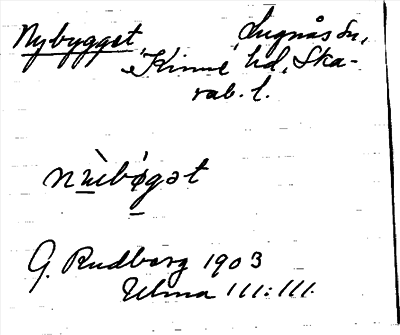 Nybygget, Lugnås sn,
Kinne hd, Ska-
rab. l.
nùibǿgət
G. Rudberg 1903
Ulma 111:111.